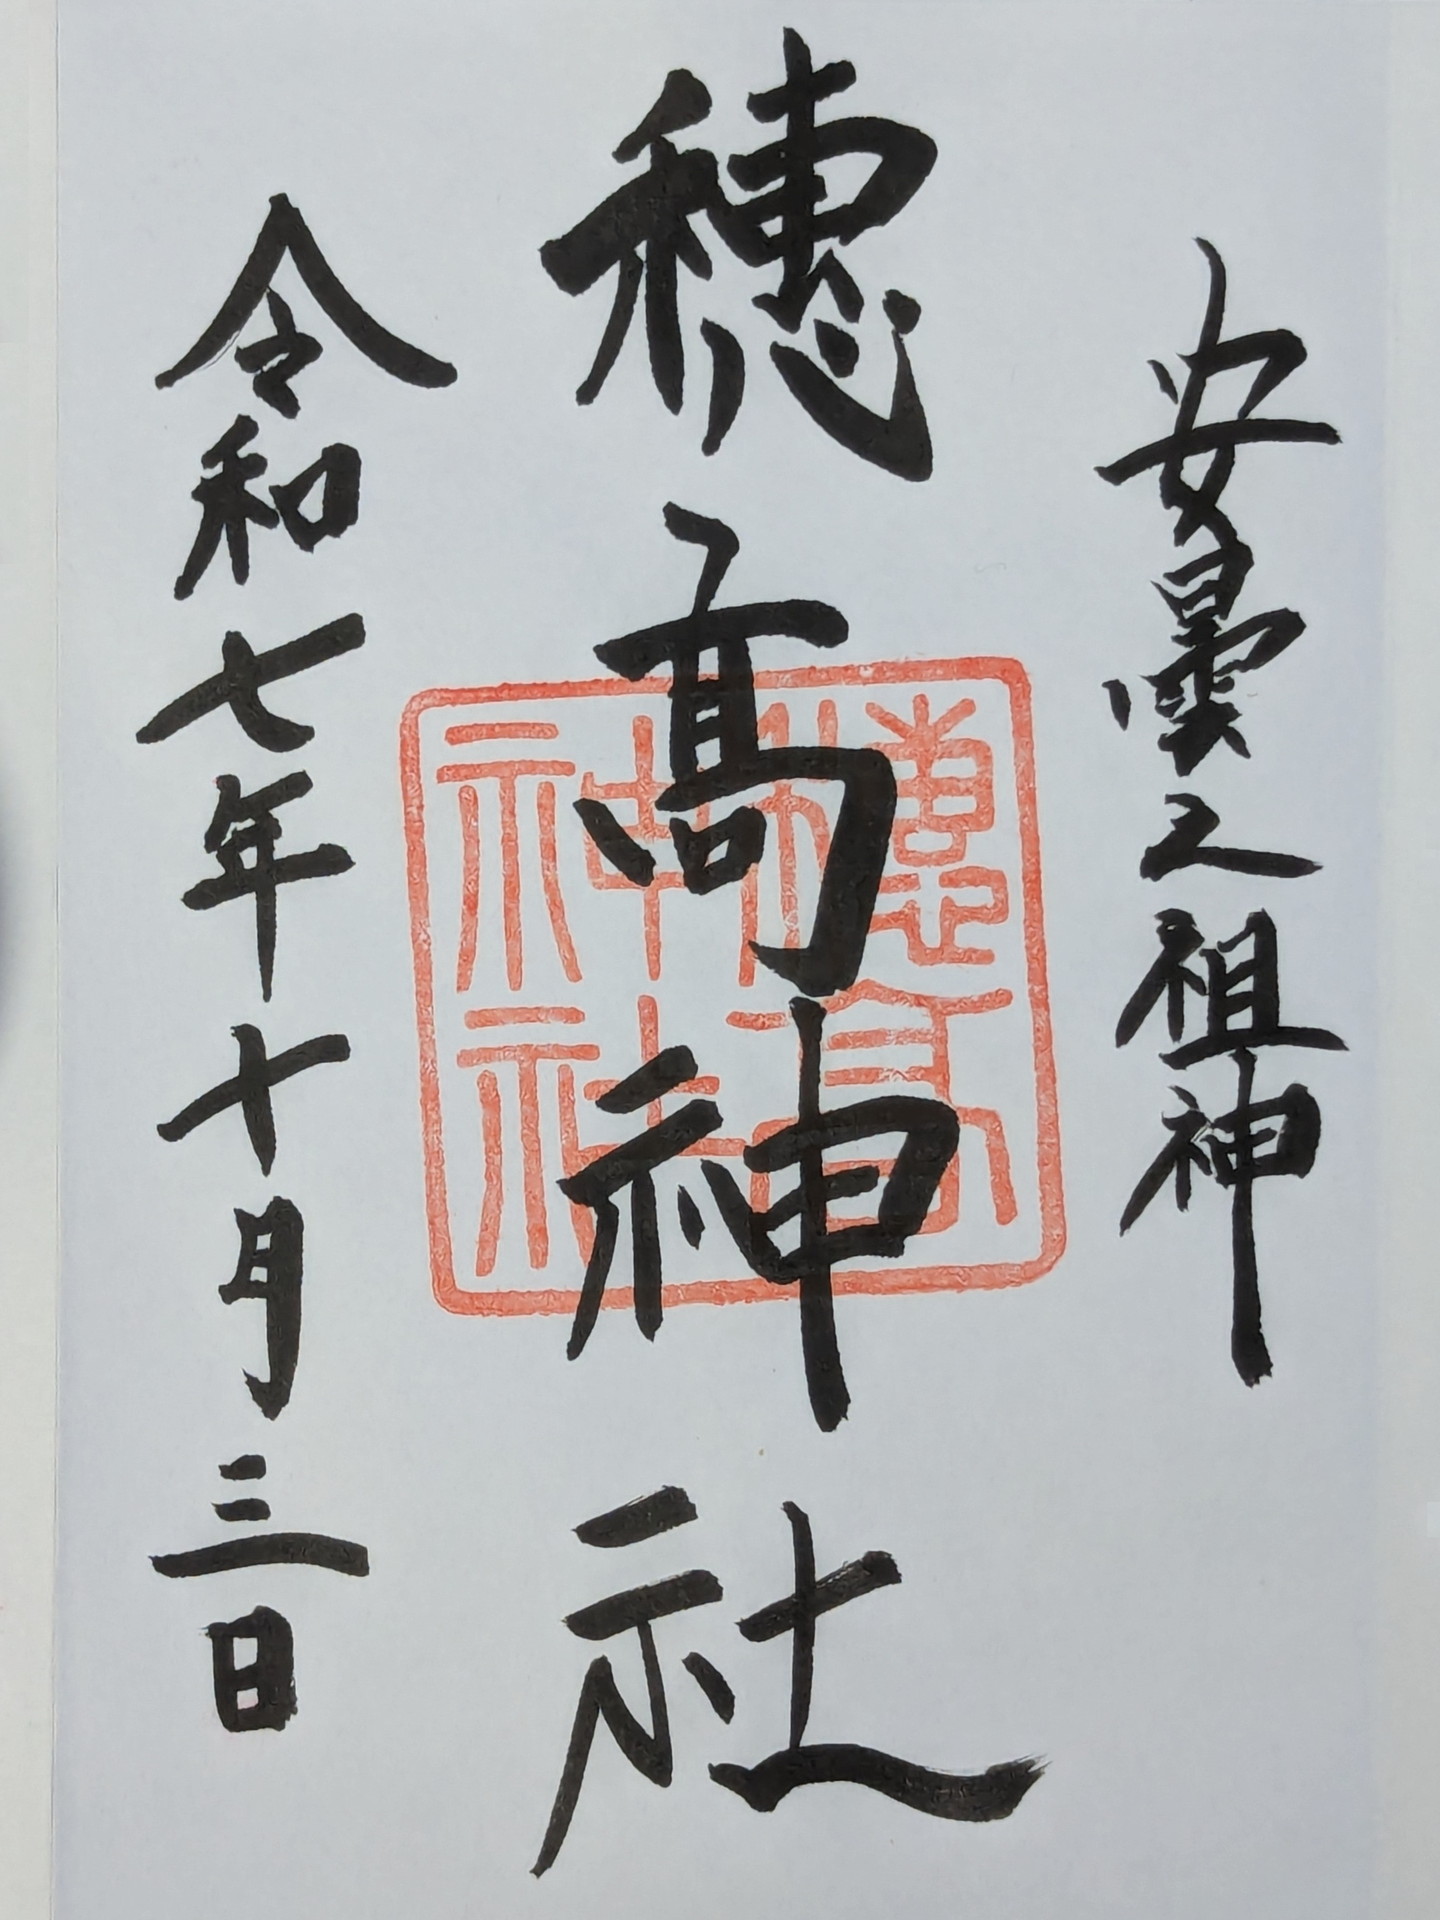 安曇之祖神
穂髙神社
穂髙
神社
令和七年十月三日